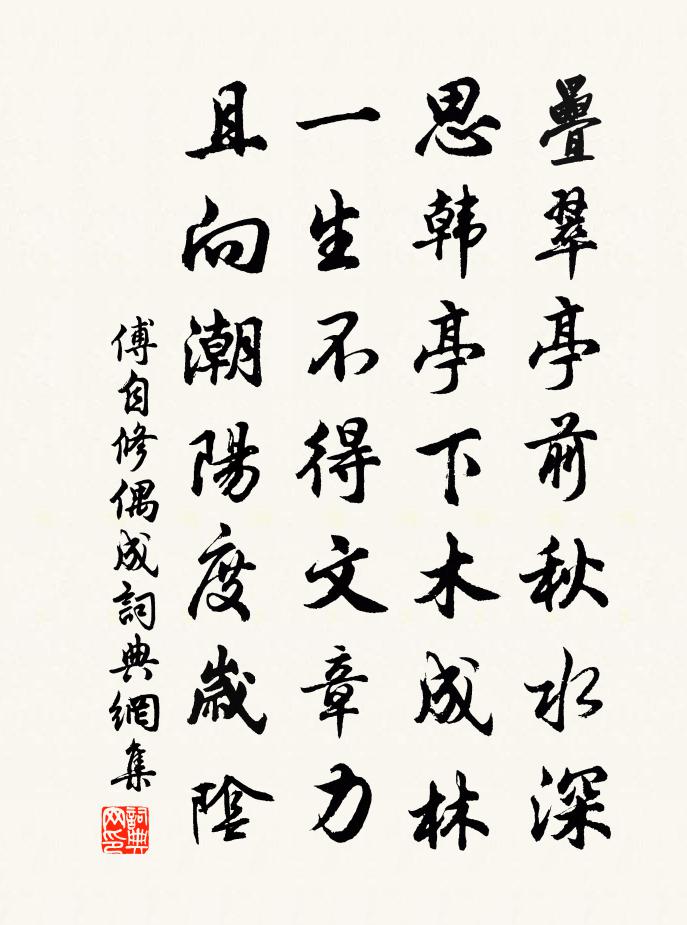 疊翠亭前秋水深
思韩亭下木成林
一生不得文章力
且向潮陽度歲陰
傅自修偶成詞典網集
詞典网印